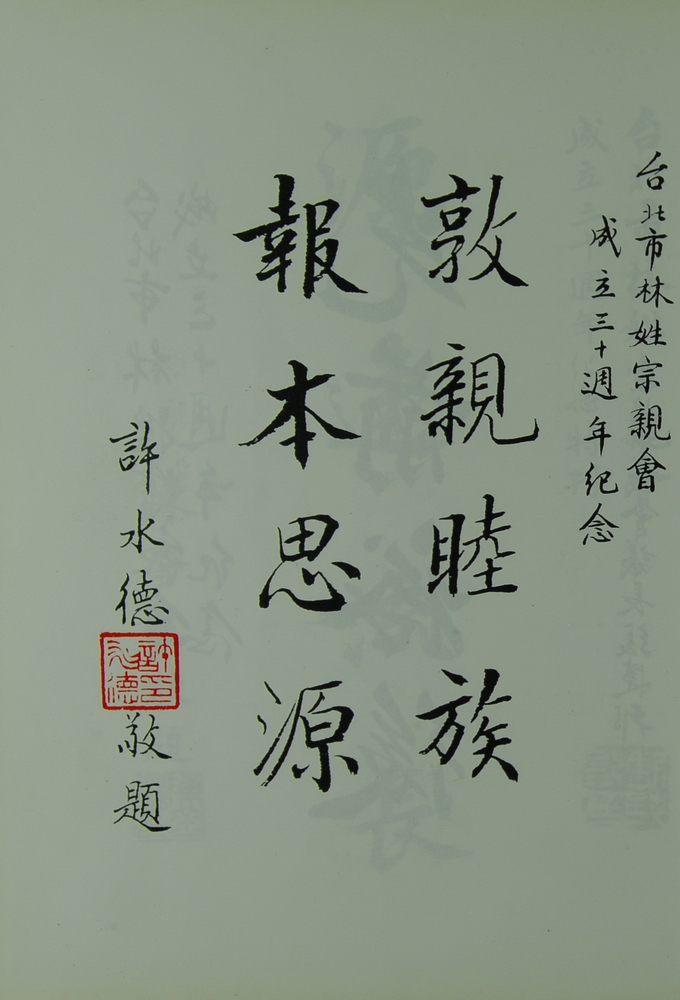 台北市林姓宗親會
成立三十週年紀念
敦親睦族
報本思源
許水德
許水德印
敬題